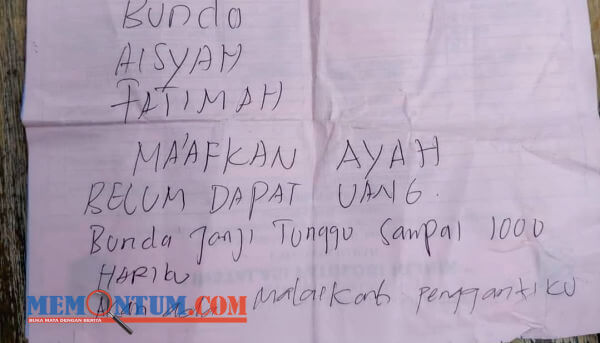 Bunda
AISYAH
FATIMAH
MA'AFKAN AYAH
BELUM DAPAT UANG.
Bunda Janji Tunggu Sampai 1000
HARIKU
Malaikat penggantiku
MEMONTUM.COM
BUKA MATA DENGAN BERITA